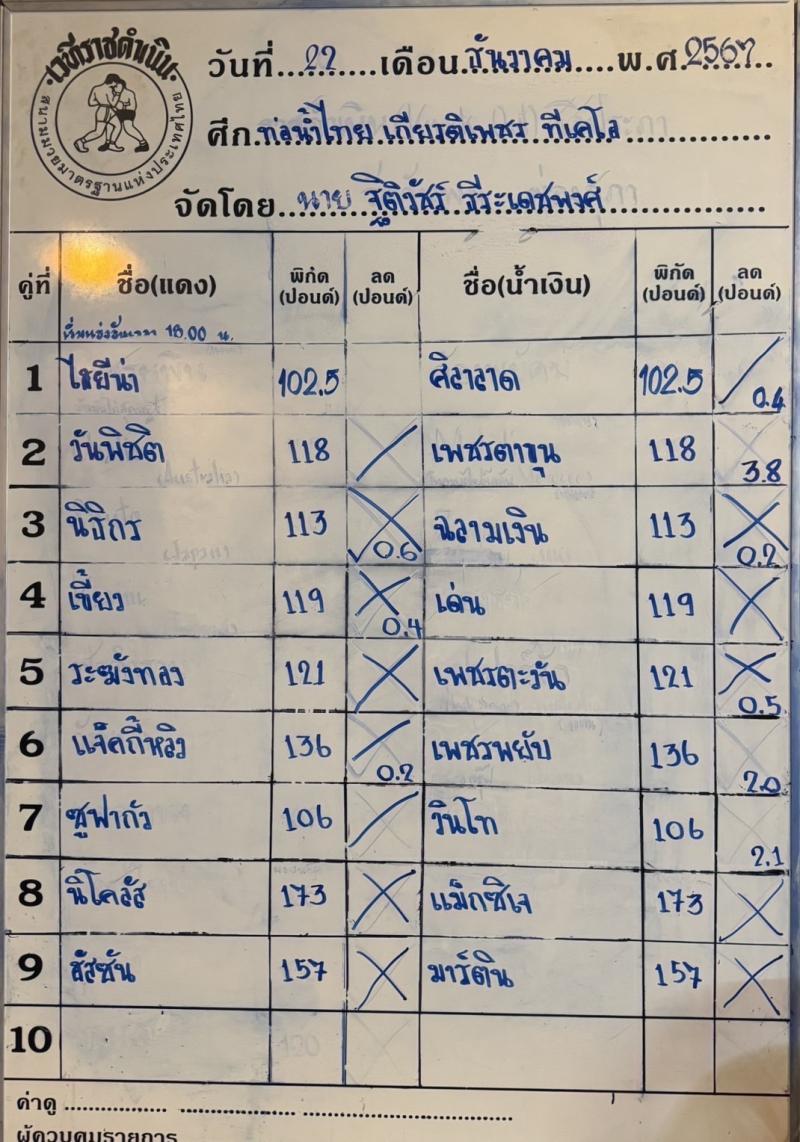 เวทีราชดำเนิน
สนามมวยมาตรฐานแห่งประเทศไทย
วันที่...22....เดือน.ธันวาคม....พ.ศ.2567..
ศึก.ท่อน้ำไทย เกียรติเพชร ทีเคโอ
จัดโดย...นาย ฐิติวัชร์ ธีระเดชพงศ์
คู่ที่ ชื่อ(แดง) พิกัด (ปอนด์) ลด (ปอนด์) ชื่อ(น้ำเงิน) พิกัด (ปอนด์) ลด (ปอนด์)
18.00 น.
1 ไรยีน่า 102.5 ศิลาลาด 102.5 / 0.4
2 วันพิชิต 118 / เพชรตาขุน 118 3.8
3 นิธิกร 113 X ✓0.6 ฉลามเงิน 113 X 0.2
4 เขี้ยว 119 X 0.4 เด่น 119 X
5 ระฆังทอง 121 X เพชรตะวัน 121 X 0.5
6 แจ็คกี้หลิง 136 / 0.2 เพชรพยับ 136 2.0
7 ซูฟากัว 106 / วินโท 106 2.1
8 นิโคลัส 173 X แม็กซิเจ 173 X
9 ฮัสซัน 157 X มาร์ติน 157 X
10
ค่าดู
ผู้ควบคุมรายการ